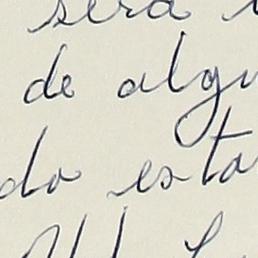 será
de algu
do esta